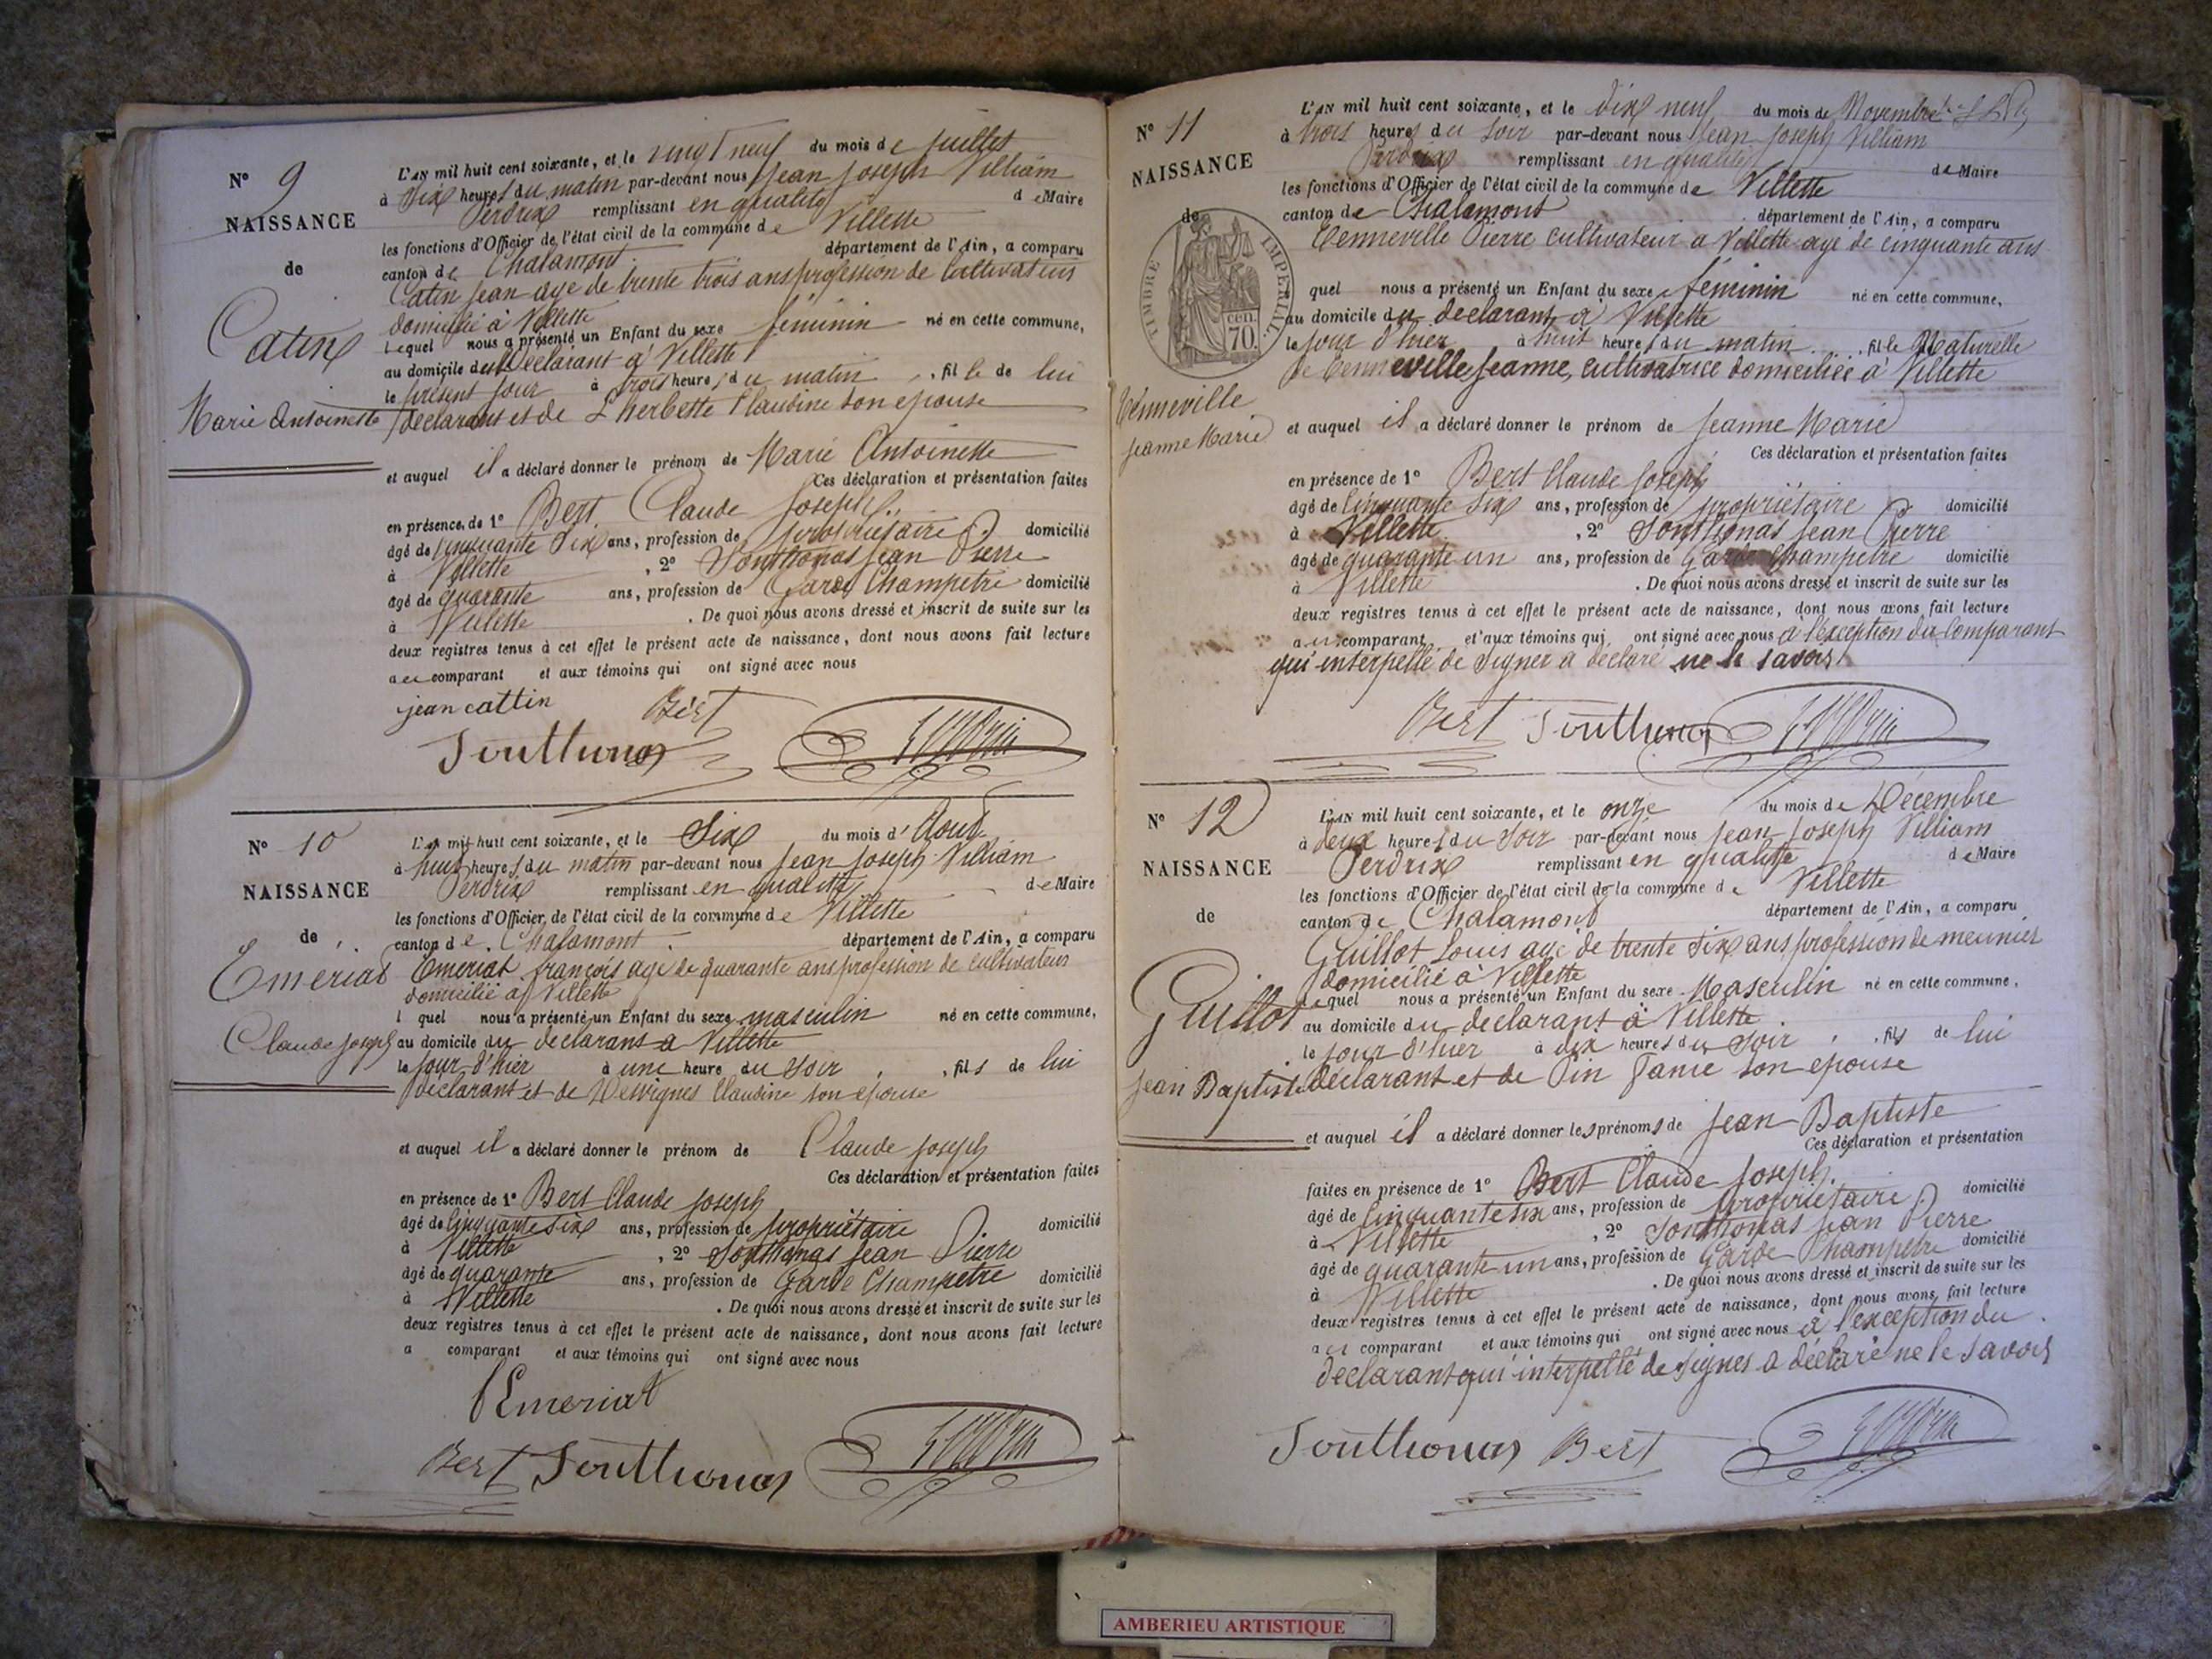 N° 9
NAISSANCE
de
Catin
Marie Antoinette
L'AN mil huit cent soixante, et le vingt neuf du mois de juillet
à six heures du matin par-devant nous Jean Joseph Villiam
Perdrix remplissant en qualité de Maire
les fonctions d'Officier de l'état civil de la commune de Villette
canton de Chalamont département de l'Ain, a comparu
Catin Jean age de trente trois ans profession de Cultivateur
domicilié à Villette
Lequel nous a présenté un Enfant du sexe féminin né en cette commune,
au domicile du Déclarant à Villette
le présent jour à trois heures du matin, fille de lui
déclarant et de L'herbette Claudine son epouse
et auquel il a déclaré donner le prénom de Marie Antoinette
Ces déclaration et présentation faites
en présence de 1° Bert Claude Joseph
âgé de cinquante six ans, profession de propriétaire domicilié
à Villette, 2° Sonthonas Jean Pierre
âgé de quarante ans, profession de Garde Champetre domicilié
à Villette. De quoi nous avons dressé et inscrit de suite sur les
deux registres tenus à cet effet le présent acte de naissance, dont nous avons fait lecture
au comparant et aux témoins qui ont signé avec nous
jean cattin Bert
Sonthonas
N° 10
NAISSANCE
de
Emeriat
Claude Joseph
L'AN mil huit cent soixante, et le Six du mois d'Aout
à huit heures du matin par-devant nous Jean Joseph Villiam
Perdrix remplissant en qualité de Maire
les fonctions d'Officier de l'état civil de la commune de Villette
canton de Chalamont département de l'Ain, a comparu
Emeriat françois age de quarante ans profession de cultivateur
domicilié à Villette
l quel nous a présenté un Enfant du sexe masculin né en cette commune,
au domicile du declarant a Villette
le jour d'hier à une heure du soir, fils de lui
declarant et de Desvignes Claudine son epouse
et auquel il a déclaré donner le prénom de Claude Joseph
Ces déclaration et présentation faites
en présence de 1° Bert Claude Joseph
âgé de Cinquante six ans, profession de propriétaire domicilié
à Villette, 2° Sonthonas Jean Pierre
âgé de quarante ans, profession de Garde Champetre domicilié
à Villette. De quoi nous avons dressé et inscrit de suite sur les
deux registres tenus à cet effet le présent acte de naissance, dont nous avons fait lecture
a comparant et aux témoins qui ont signé avec nous
Emeriat
Bert Sonthonas
N° 11
NAISSANCE
de
TIMBRE IMPERIAL
70 cen.
Tenneville
Jeanne Marie
L'AN mil huit cent soixante, et le dix neuf du mois de Novembre
à trois heures du soir par-devant nous Jean Joseph Villiam
Perdrix remplissant en qualité de Maire
les fonctions d'Officier de l'état civil de la commune de Villette
canton de Chalamont département de l'Ain, a comparu
Tenneville Pierre cultivateur a Villette age de cinquante ans
quel nous a présenté un Enfant du sexe féminin né en cette commune,
au domicile du declarant a Villette
le jour d'hier à huit heures du matin, fille Naturelle
de Tenneville Jeanne, cultivatrice domiciliée à Villette
et auquel il a déclaré donner le prénom de Jeanne Marie
Ces déclaration et présentation faites
en présence de 1° Bert Claude Joseph
âgé de Cinquante six ans, profession de propriétaire domicilié
à Villette, 2° Sonthonas Jean Pierre
âgé de quarante un ans, profession de Garde Champetre domicilié
à Villette. De quoi nous avons dressé et inscrit de suite sur les
deux registres tenus à cet effet le présent acte de naissance, dont nous avons fait lecture
au comparant et aux témoins qui ont signé avec nous à l'exception du Comparant
qui interpellé de signer a déclaré ne le savoir
Bert Sonthonas
N° 12
NAISSANCE
de
Guillot
Jean Baptiste
L'AN mil huit cent soixante, et le onze du mois de Décembre
à deux heures du soir par-devant nous Jean Joseph Villiam
Perdrix remplissant en qualité de Maire
les fonctions d'Officier de l'état civil de la commune de Villette
canton de Chalamont département de l'Ain, a comparu
Guillot Louis age de trente six ans profession de meunier
domicilié à Villette
Lequel nous a présenté un Enfant du sexe Masculin né en cette commune,
au domicile du declarant à Villette
le jour d'hier à dix heures du soir, fils de lui
déclarant et de Pin Fanie son epouse
et auquel il a déclaré donner les prénoms de Jean Baptiste
Ces déclaration et présentation
faites en présence de 1° Bert Claude Joseph
âgé de Cinquante six ans, profession de propriétaire domicilié
à Villette, 2° Sonthonas Jean Pierre
âgé de quarante un ans, profession de Garde Champetre domicilié
à Villette. De quoi nous avons dressé et inscrit de suite sur les
deux registres tenus à cet effet le présent acte de naissance, dont nous avons fait lecture
au comparant et aux témoins qui ont signé avec nous à l'exception du
declarant qui interpellé de signer a déclaré ne le savoir
Sonthonas Bert
AMBERIEU ARTISTIQUE